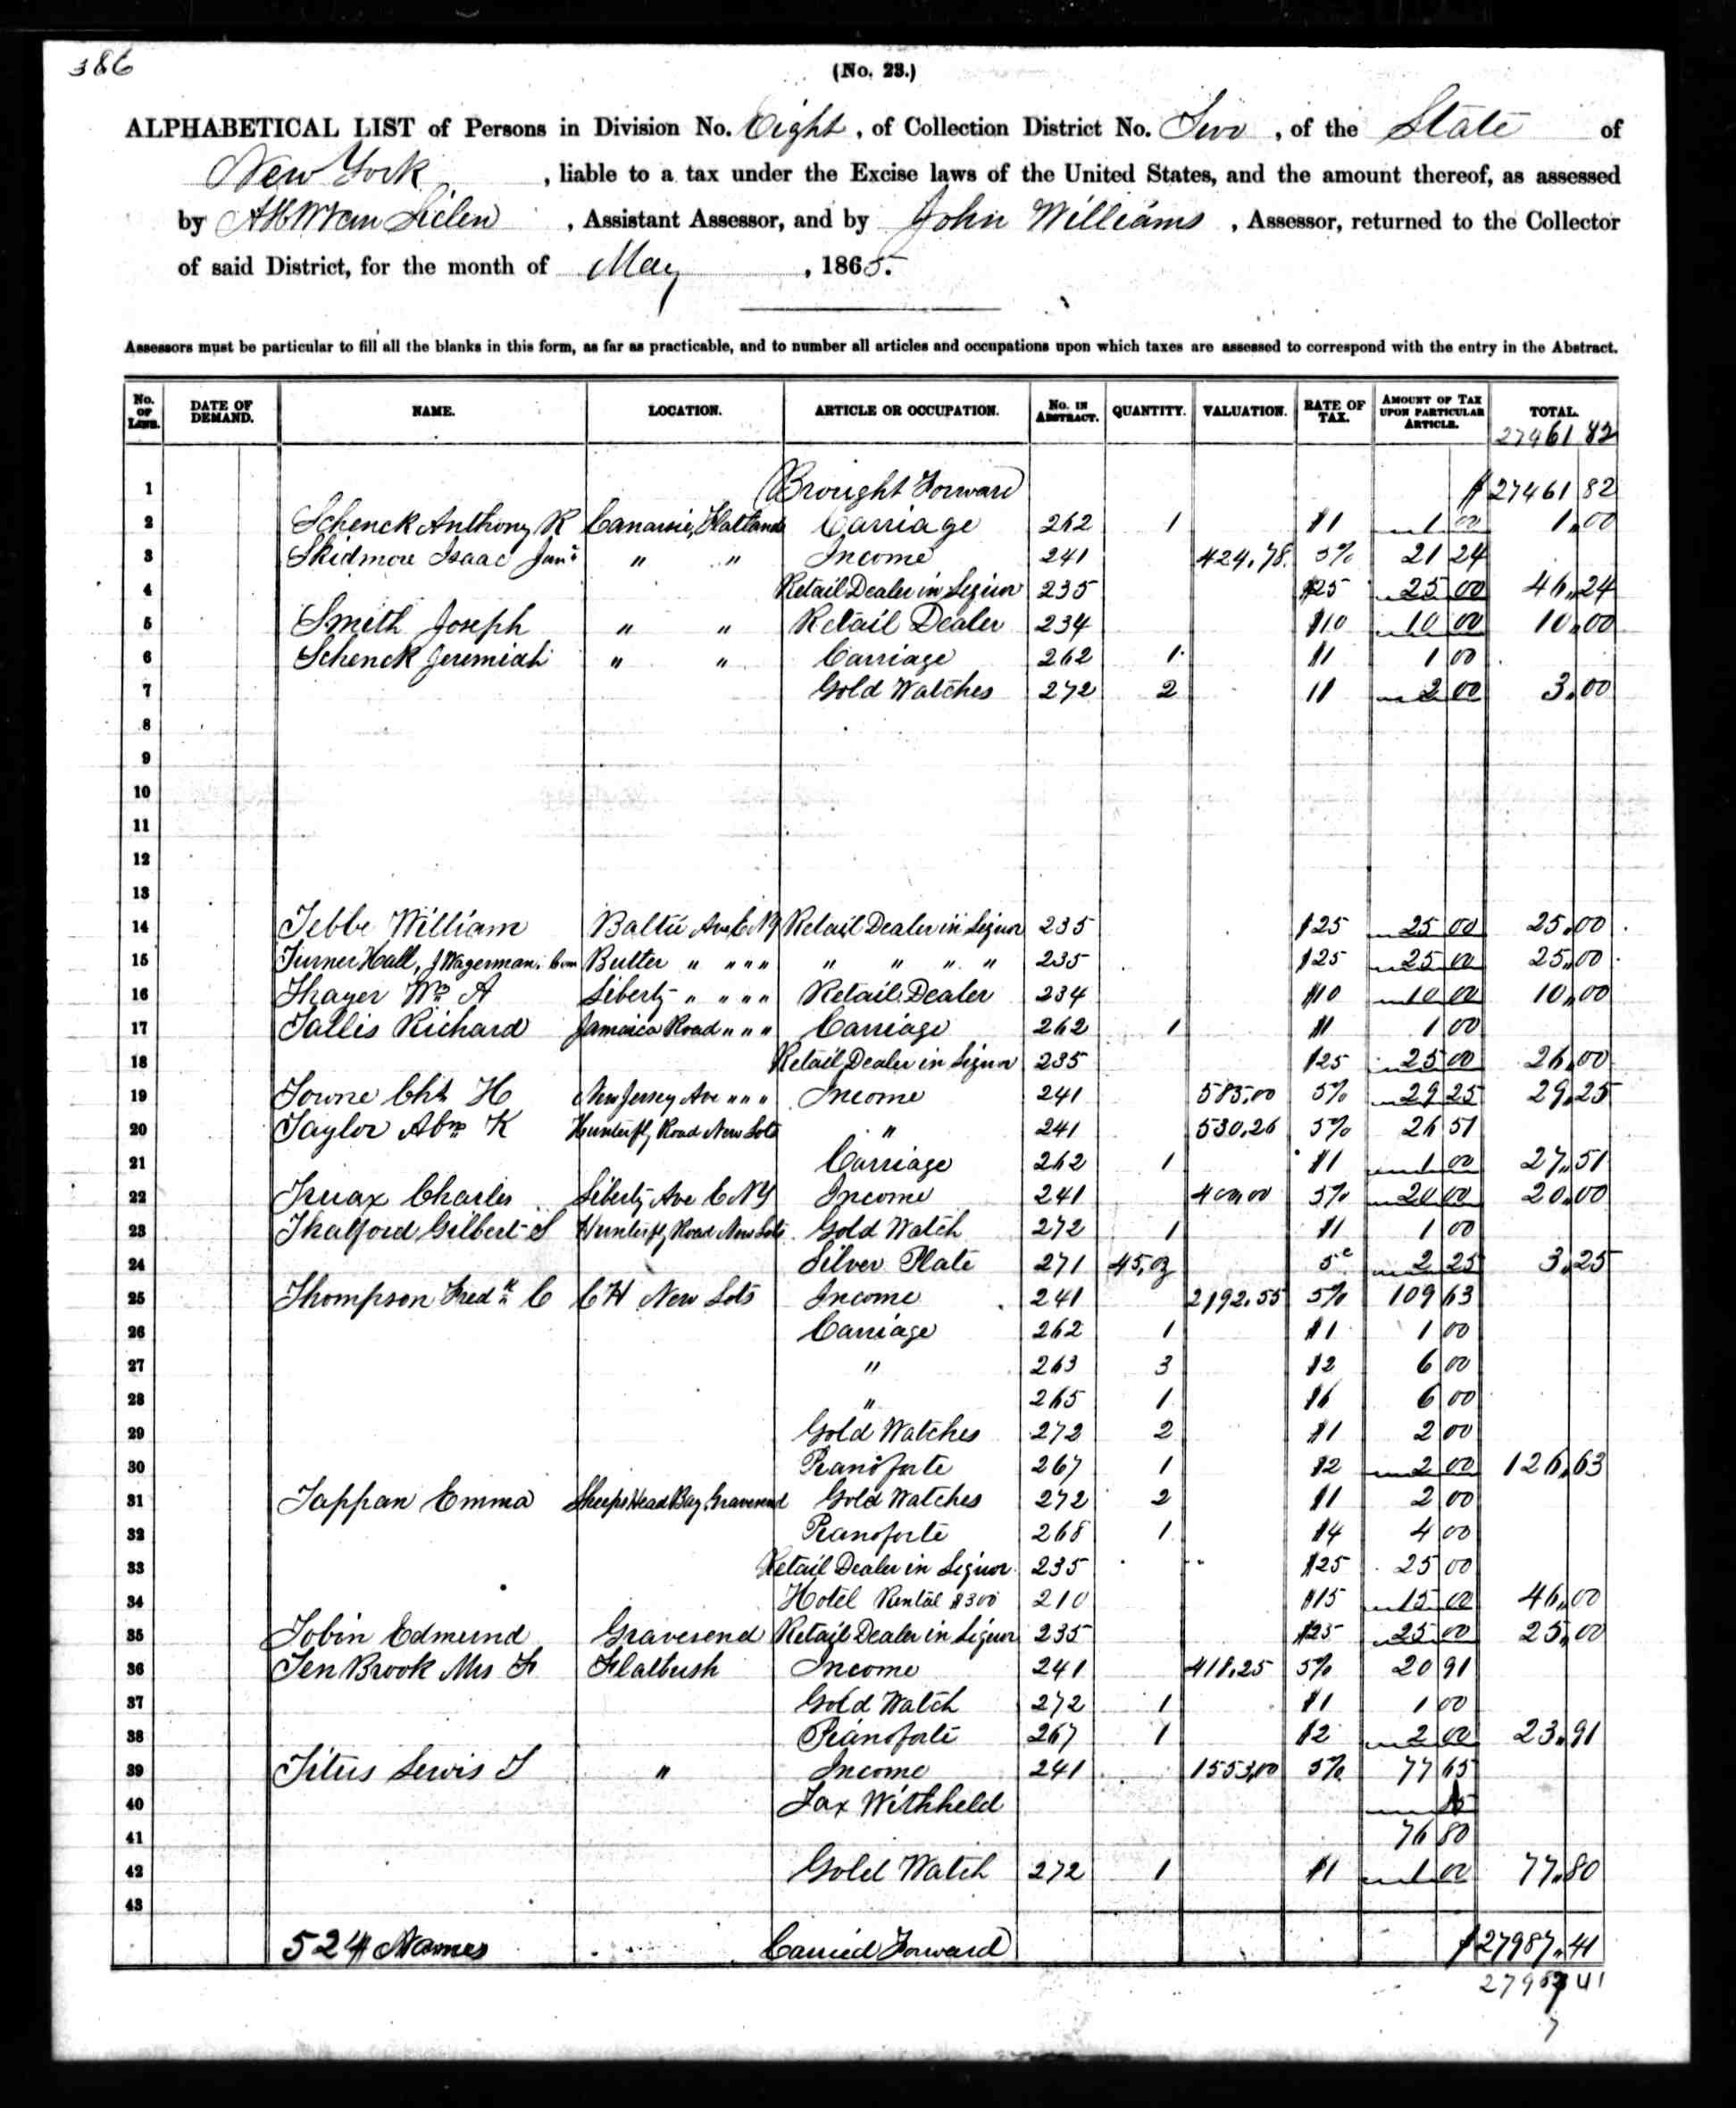 386
(No. 23.)
ALPHABETICAL LIST of Persons in Division No. Eight, of Collection District No. Two, of the State of
New York, liable to a tax under the Excise laws of the United States, and the amount thereof, as assessed
by, Assistant Assessor, and by John Williams, Assessor, returned to the Collector
of said District, for the month of May, 1865.
Assessors must be particular to fill all the blanks in this form, as far as practicable, and to number all articles and occupations upon which taxes are assessed to correspond with the entry in the Abstract.
No. OF LINE. DATE OF DEMAND. NAME. LOCATION. ARTICLE OR OCCUPATION. No. IN ABSTRACT. QUANTITY. VALUATION. RATE OF TAX. AMOUNT OF TAX UPON PARTICULAR ARTICLE. TOTAL.
27461 82
1 Brought Forward $27461 82
2 Schenck Anthony R Canarsie, Flatlands Carriage 262 1 $1 1 00 1,00
3 Skidmore Isaac Junr " " Income 241 424.78 5% 21 24
4 Retail Dealer in Liquor 235 $25 25 00 46,24
5 Smith Joseph " " Retail Dealer 234 $10 10 00 10,00
6 Schenck Jeremiah " " Carriage 262 1 $1 1 00
7 Gold Watches 272 2 $1 2 00 3,00
8
9
10
11
12
13
14 Tebbe William Baltic Ave E NY Retail Dealer in Liquor 235 $25 25 00 25,00
15 Turner Hall, J Wagerman, Com Butler " " " " " " " " 235 $25 25 00 25,00
16 Thayer Wm A Liberty " " " " Retail Dealer 234 $10 10 00 10,00
17 Tallis Richard Jamaica Road " " " Carriage 262 1 $1 1 00
18 Retail Dealer in Liquor 235 $25 25 00 26,00
19 Towne Chs H New Jersey Ave " " " Income 241 585,00 5% 29 25 29,25
20 Taylor Abm K Hunterfly Road New Lots " 241 530,26 5% 26 51
21 Carriage 262 1 $1 1 00 27,51
22 Truax Charles Liberty Ave E NY Income 241 400,00 5% 20 00 20,00
23 Thatford Gilbert S Hunterfly Road New Lots Gold Watch 272 1 $1 1 00
24 Silver Plate 271 45,oz 5c 2 25 3,25
25 Thompson Fredk C C H New Lots Income 241 2192.55 5% 109 63
26 Carriage 262 1 $1 1 00
27 " 263 3 $2 6 00
28 " 265 1 $6 6 00
29 Gold Watches 272 2 $1 2 00
30 Pianoforte 267 1 $2 2 00 126,63
31 Tappan Emma Sheeps Head Bay, Gravesend Gold Watches 272 2 $1 2 00
32 Pianoforte 268 1 $4 4 00
33 Retail Dealer in Liquor 235 $25 25 00
34 Hotel Rental $300 210 $15 15 00 46,00
35 Tobin Edmund Gravesend Retail Dealer in Liquor 235 $25 25 00 25,00
36 Ten Brook Mrs F Flatbush Income 241 418.25 5% 20 91
37 Gold Watch 272 1 $1 1 00
38 Pianoforte 267 1 $2 2 00 23,91
39 Titus Lewis T " Income 241 1553,00 5% 77 65
40 Tax Withheld 85
41 76 80
42 Gold Watch 272 1 $1 1 00 77,80
43
524 Names Carried Forward $27987,41
27987 41
7